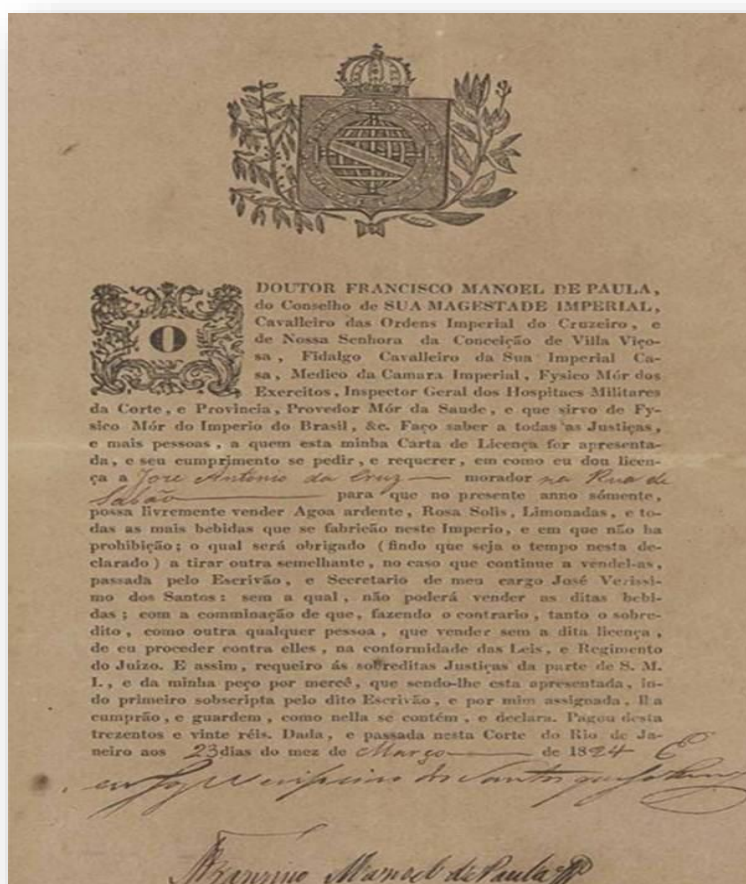 O
DOUTOR FRANCISCO MANOEL DE PAULA,
do Conselho de SUA MAGESTADE IMPERIAL,
Cavalleiro das Ordens Imperial do Cruzeiro, e
de Nossa Senhora da Conceição de Villa Viço-
sa, Fidalgo Cavalleiro da Sua Imperial Ca-
sa, Medico da Camara Imperial, Fysico Mór dos
Exercitos, Inspector Geral dos Hospitaes Militares
da Corte, e Provincia, Provedor Mór da Saude, e que sirvo de Fy-
sico Mór do Imperio do Brasil, &c. Faço saber a todas as Justiças,
e mais pessoas, a quem esta minha Carta de Licença for apresenta-
da, e seu cumprimento se pedir, e requerer, em como eu dou licen-
ça a Joze Antonio da Cruz morador na Rua de
Sabão para que no presente anno sómente,
possa livremente vender Agoa ardente, Rosa Solis, Limonadas, e to-
das as mais bebidas que se fabricão neste Imperio, e em que não ha
prohibição; o qual será obrigado (findo que seja o tempo nesta de-
clarado) a tirar outra semelhante, no caso que continue a vendel-as,
passada pelo Escrivão, e Secretario de meu cargo José Verissi-
mo dos Santos: sem a qual, não poderá vender as ditas bebi-
das; com a comminação de que, fazendo o contrario, tanto o sobre-
dito, como outra qualquer pessoa, que vender sem a dita licença,
de eu proceder contra elles, na conformidade das Leis, e Regimento
do Juizo. E assim, requeiro ás sobreditas Justiças da parte de S. M.
I., e da minha peço por mercê, que sendo-lhe esta apresentada, in-
do primeiro sobscripta pelo dito Escrivão, e por mim assignada, lla
cumprão, e guardem, como nella se contém, e declara. Pagou desta
trezentos e vinte réis. Dada, e passada nesta Corte do Rio de Ja-
neiro aos 23 dias do mez de Março de 1824 E
eu dos Santos
Manoel de Paula